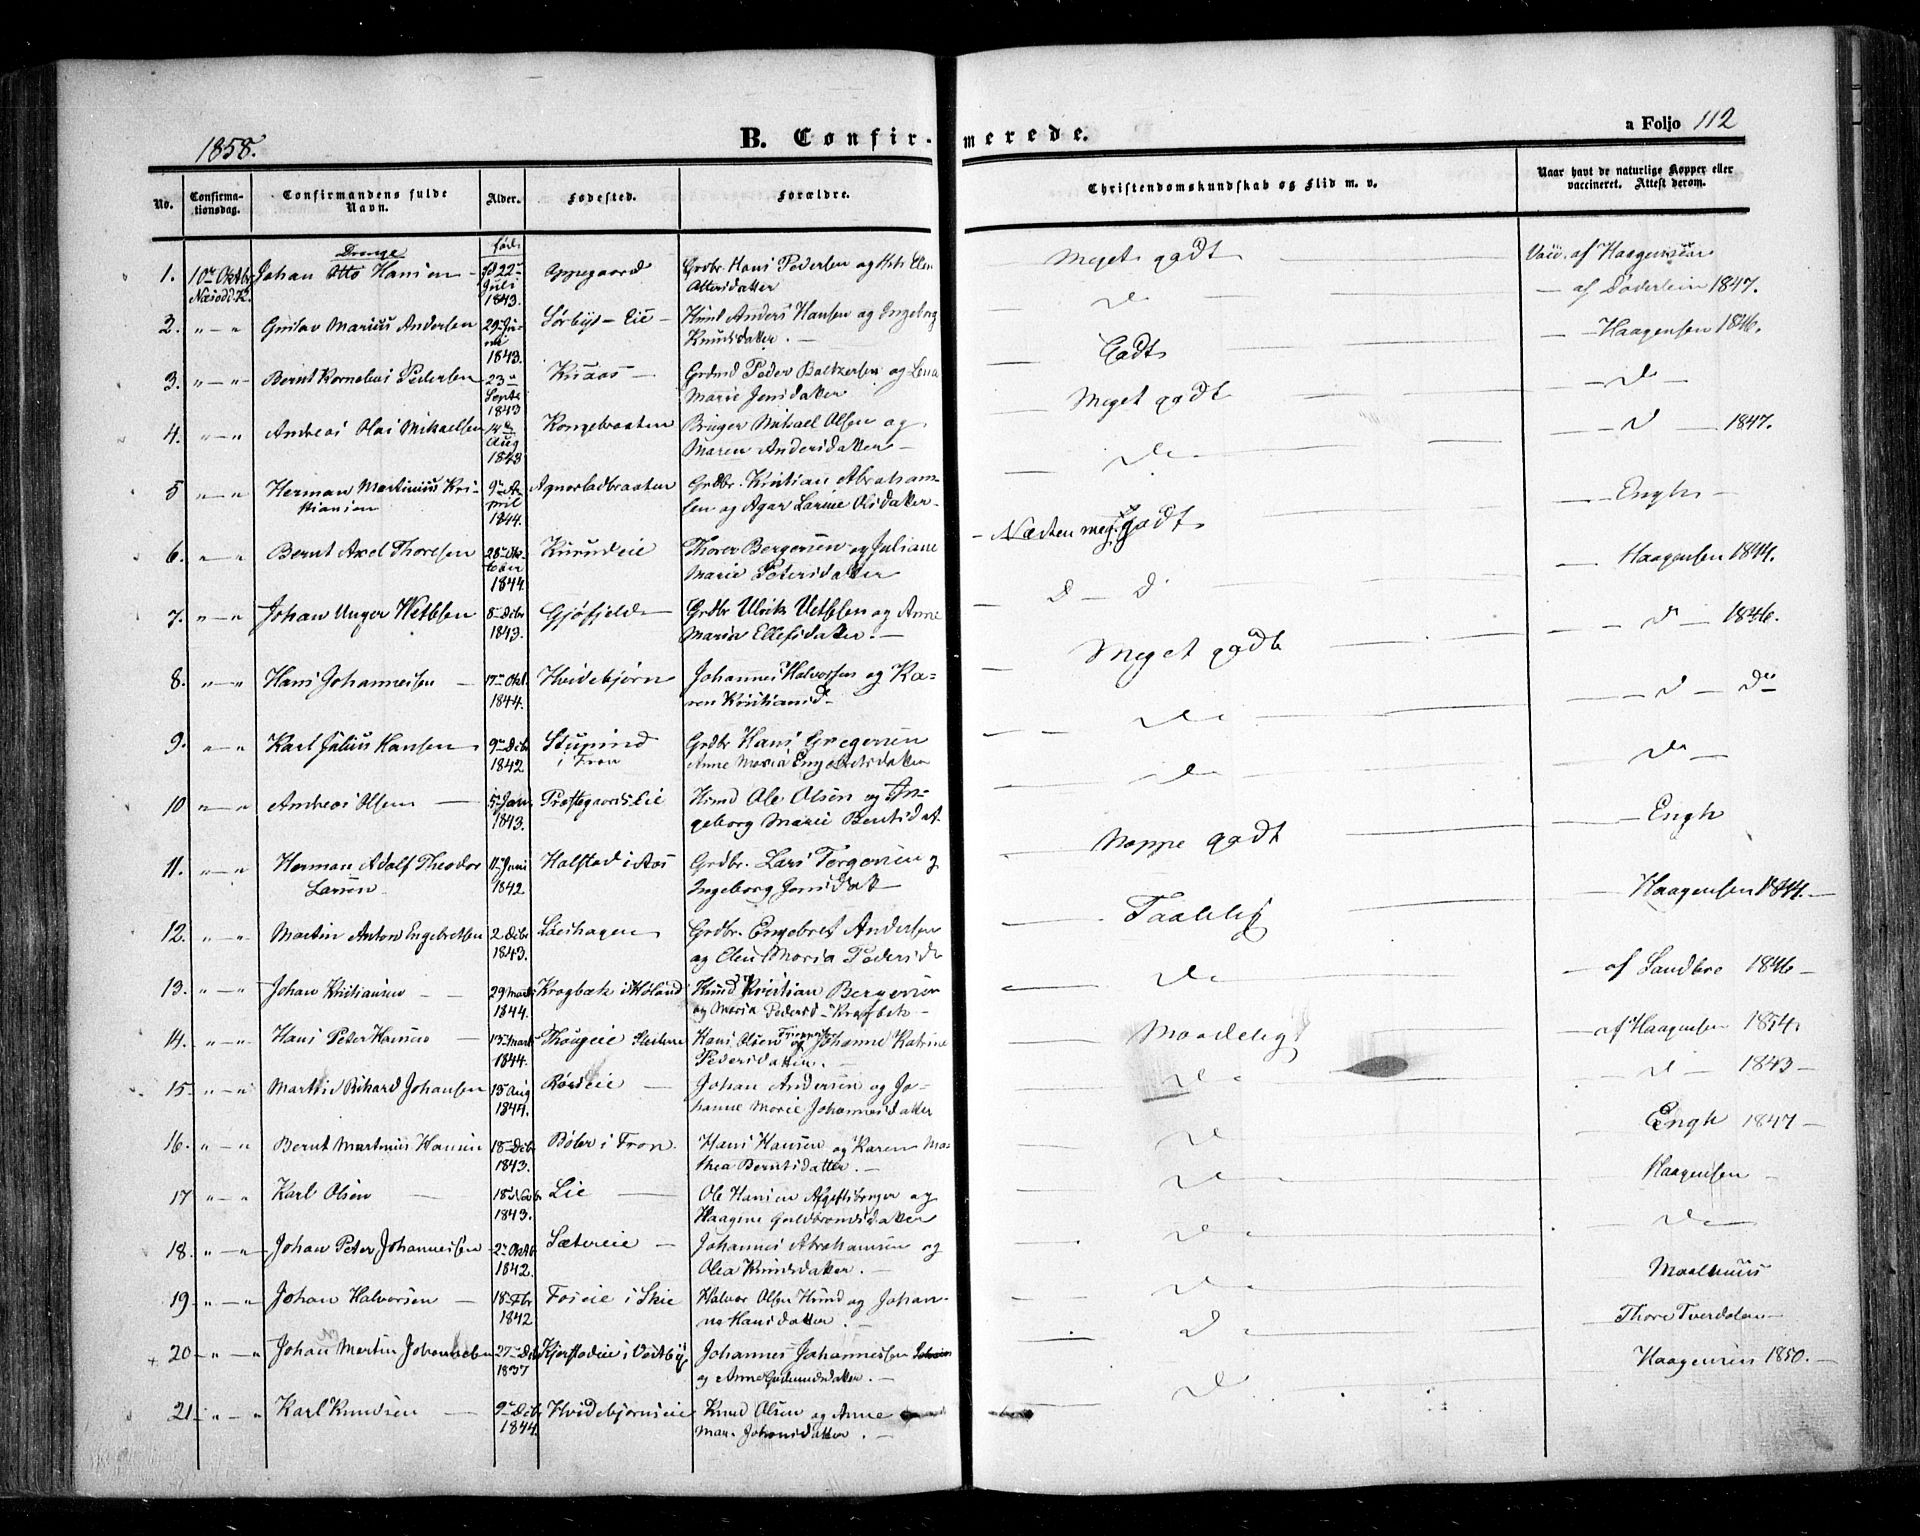 1858.
B. Confirmerede.
a Foljo 112
No.
Confirmationsdag.
Confirmandens fulde Navn.
Alder.
Fødested.
Forældre.
Christendomskundskab og Flid m. v.
Naar havt de naturlige Kopper eller vaccineret. Attest derom.
Drenge
født
1. 10de Oktbr Næsodd. K. Johan Otto Hansen 22 Juli 1843. Oppegaard Grdbr. Hans Pedersen og Elen Ottersdatter
Meget godt
Vacc. af Haagensen
2. " — " Gustav Marius Andersen 29 Juni 1843. Sørbyst Eie Husmd Anders Hansen og Ingeborg Knudsdatter. —
Do
af Døderlein 1847.
3. " — " Bernt Kornelius Pedersen 23 Septr 1843 Knaas Grdmd Peder Baltzersen og Lena Marie Jensdatter
Godt
Haagensen 1846.
4. " — " Andreas Olai Mikaelsen 14 Aug 1843 Kongebraaten Bruger Mikael Olsen og Maren Andersdatter —
Meget godt
D —
5 " — " Herman Martinius Kristiansen 9de April 1844. Agnorladbraaten Grdbr. Kristian Abrahamsen og Agar Larine Olsdatter
Do
D — 1847.
6. " — " Bernt Axel Thoresen 28 Oktober 1844. Thorer Bergersen og Juliane Marie Petersdatter
Næsten meget godt
Engh —
7. " — " Johan Unger Wetlesen 8 Decbr 1843. Gjøfjeld Grdbr Ulrik Vetlesen og Anne Maria Ellefsdatter. —
D — D.
Haagensen 1844.
8. " — " Hans Johannesen 17 Okt. 1844. Hvidebjørn Johannes Halvorsen og Karen Kristiansd
Meget godt
D — 1846.
9. " — " Karl Julius Hansen 9 Decbr 1842. Stupind i Fron Grdbr Hans Gregersen Anne Maria Engebretsdatter
Do
D — Do
10 " — " Andreas Olsen 5 Jan 1843. Præstegaardseie Husmd Ole Olsen og Ingeborg Marie Berntsdat.
Do
Do —
11. " — " Herman Adolf Theodor Larsen 11 Juni 1842. Holstad i Aas Grdbr. Lars Torgersen og Ingeborg Jensdat —
Noppe godt
Engh
12. " — " Martin Anton Engebretsen 2 Decbr 1843. Lieshagen Grdbr. Engebret Andersen og Oline Maria Pedersd
Taalelig
Haagensen 1844.
13. " — " Johan Kristiansen 29 Marts 1844. Krogbæk i Høland Husmd Kristian Bergersen og Maria Pedersd — Krogbek
Do
af Sandbro 1846
14. " — " Hans Peter Hansen 13 Marts 1844. Hans Olsen og Johanne Katrine Pedersdatter. —
Maadelig
af Haagensen 1854.
15 " — " Martin Rikard Johansen 15 Aug 1844. Røreie Johan Andersen og Johanne Marie Johannesdatter
Do
D — 1843
16. " — " Bernt Martinius Hansen 18 Decbr 1843. Bøler i Fron Hans Hansen og Karen Mathea Berntsdatter. —
Do
Engh 1847
17 " — " Karl Olsen 18 Novbr 1843. Lie Ole Hansen og Haagine Guldbrandsdatter
Do
Haagensen
18. " — " Johan Peter Johannessen 2 Oktb 1842. Sætereie Johannes Abrahamsen og Olea Knudsdatter. —
Do
Do
19 " — " Johan Halvorsen 18 Fbr 1842. Foseie i Skie Halvor Olsen Husmd og Johanne Hansdatter. —
Maalhuus
+ 20 " — " Johan Martin Johannesen 27 Decbr 1837 Kjærstadeie i Vestby Johannes Johannessen og Anne Gudmundsdatter. —
Do
Thore Tverdalen
21 " — " Karl Knudsen 9de Decbr 1844. Hvidebjørnseie Knud Olsen og Anne Mar. Johansdatter. —
Do
Haagensen 1850.